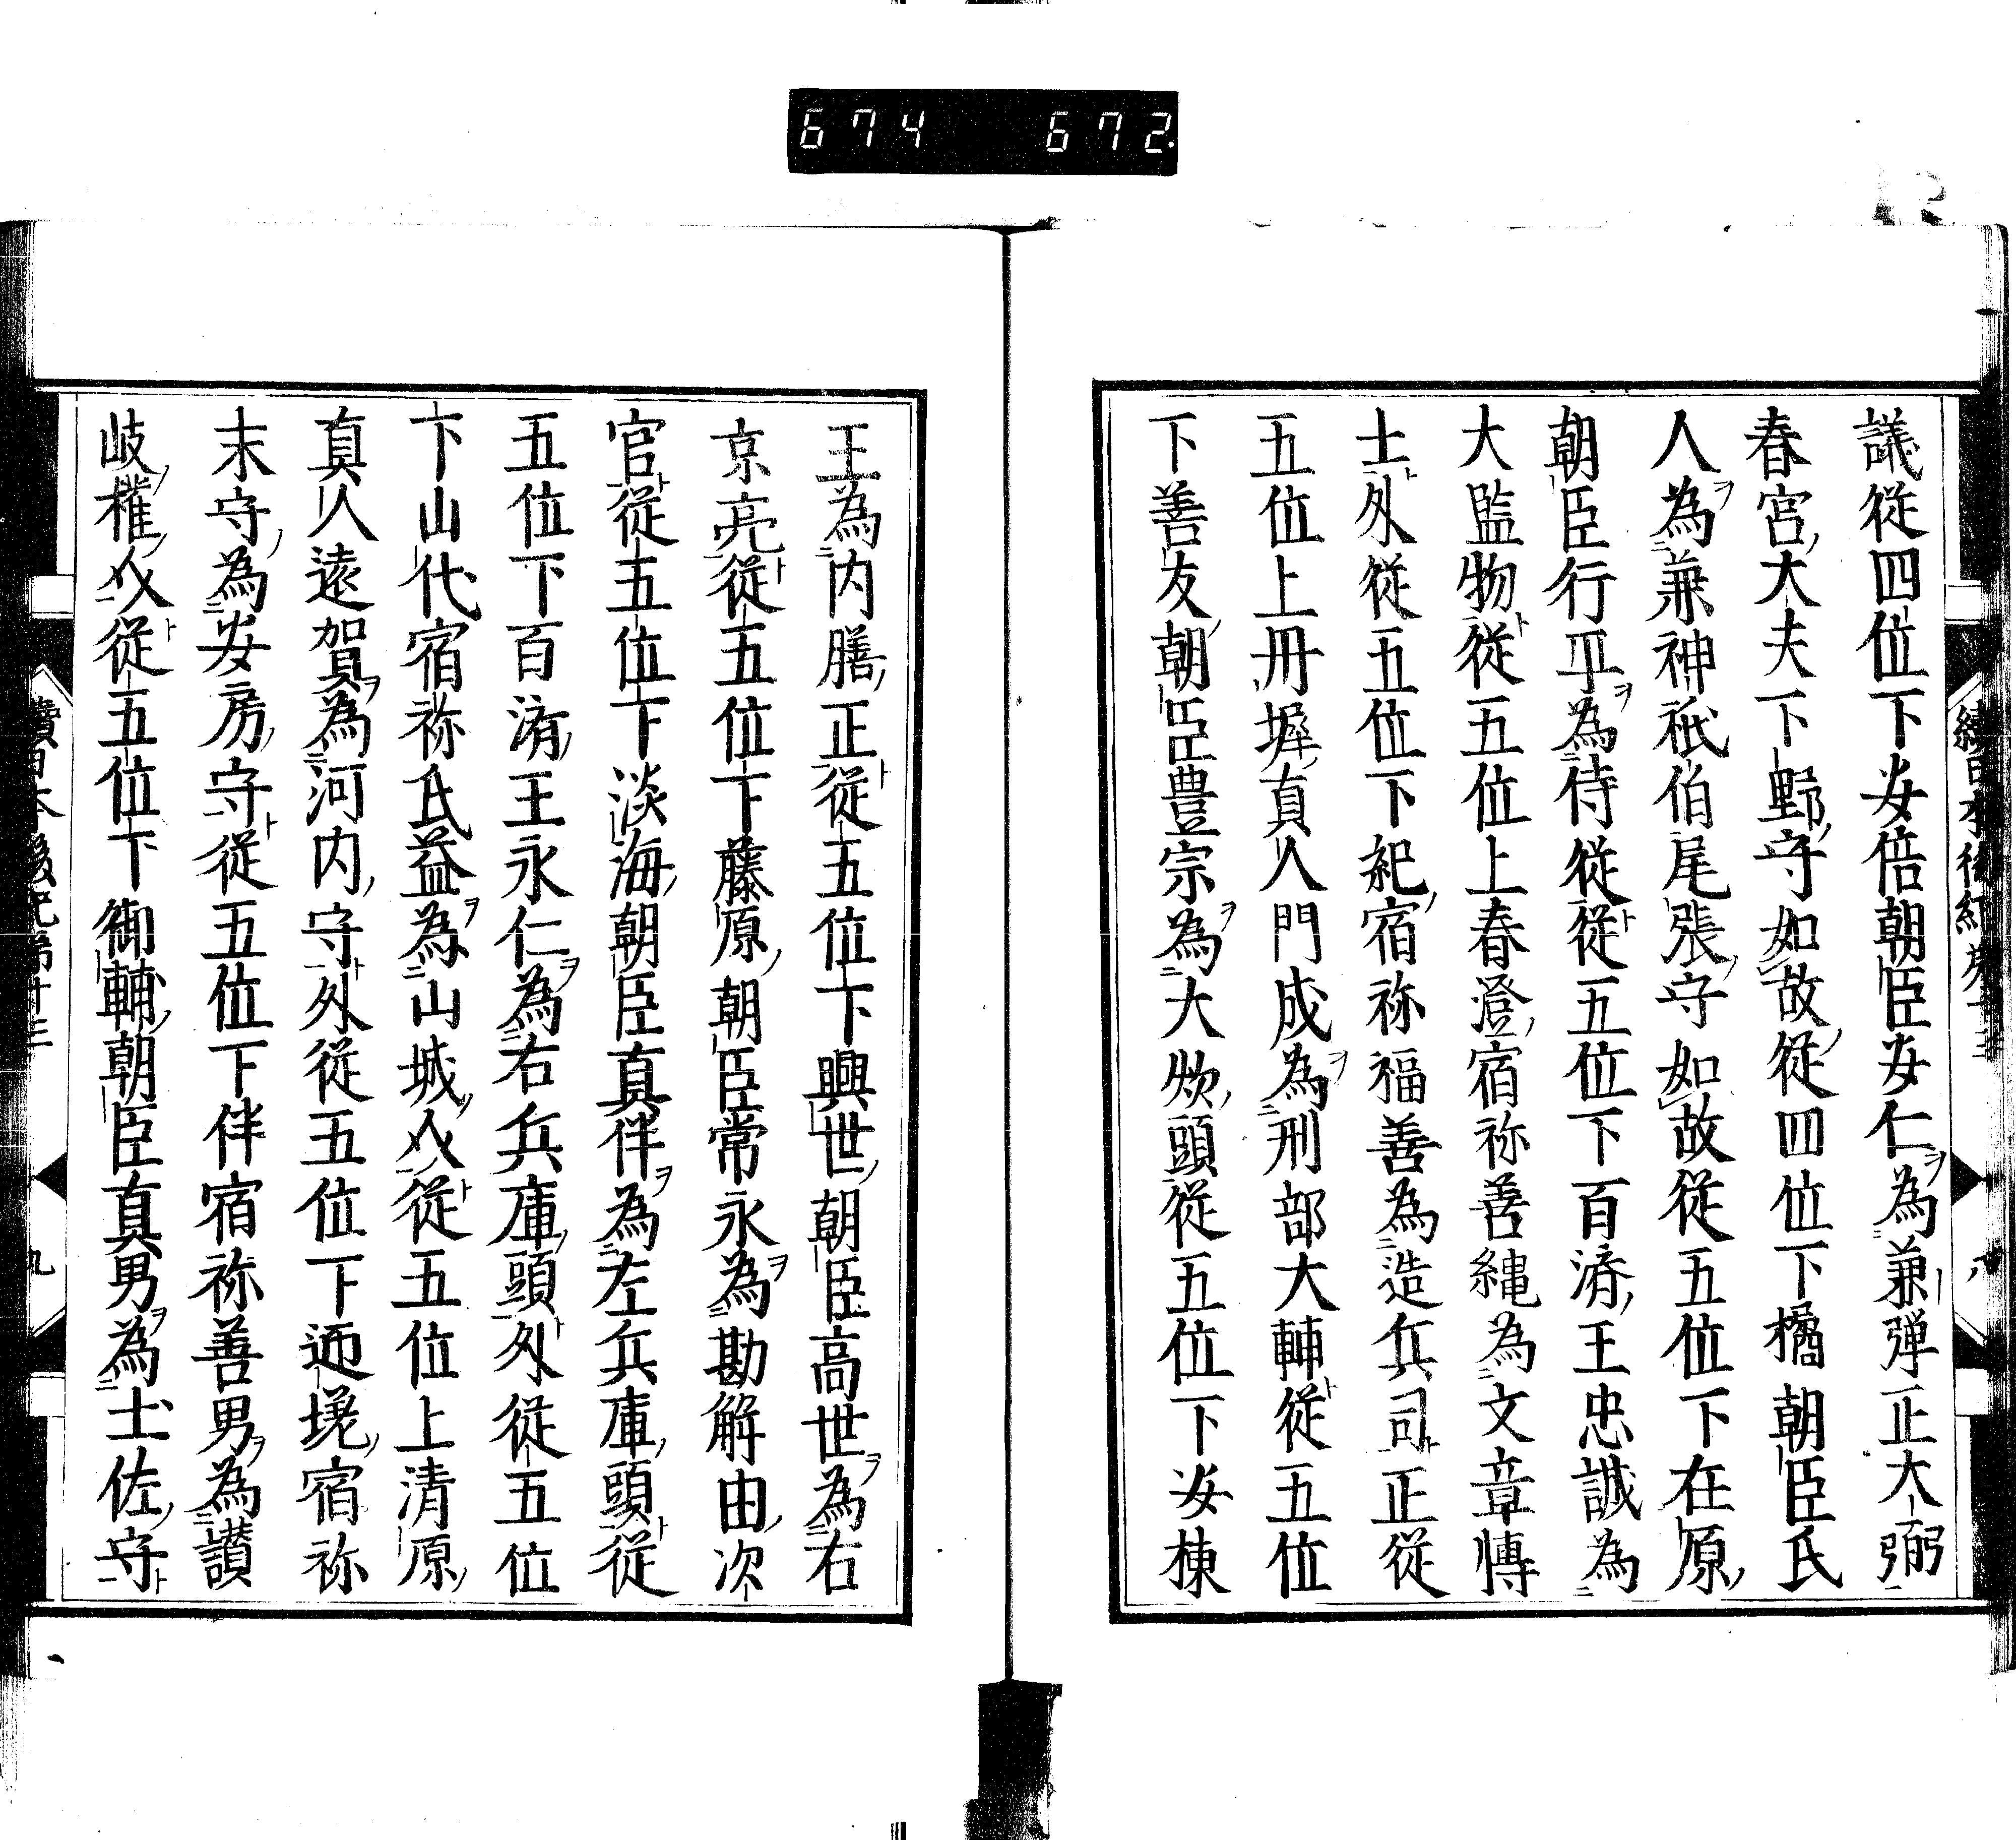 674 672
議從四位下安倍朝臣安仁為兼彈正大弼
春宮大夫下野守如故從四位下橘朝臣氏
人為兼神祇伯尾張守如故從五位下在原
朝臣行平為侍從從五位下百濟王忠誠為
大監物從五位上春澄宿祢善縄為文章博
士外從五位下紀宿祢福善為造兵司正從
五位上丹墀真人門成為刑部大輔從五位
下善友朝臣豊宗為大炊頭從五位下安棟
王為内膳正從五位下興世朝臣高世為右
京亮從五位下藤原朝臣常永為勘解由次
官從五位下淡海朝臣真伴為左兵庫頭從
五位下百濟王永仁為右兵庫頭外從五位
下山代宿祢氏益為山城介從五位上清原
真人遠賀為河内守外從五位下廼埦宿祢
末守為安房守從五位下伴宿祢善男為讃
岐權介從五位下御輔朝臣真男為土佐守